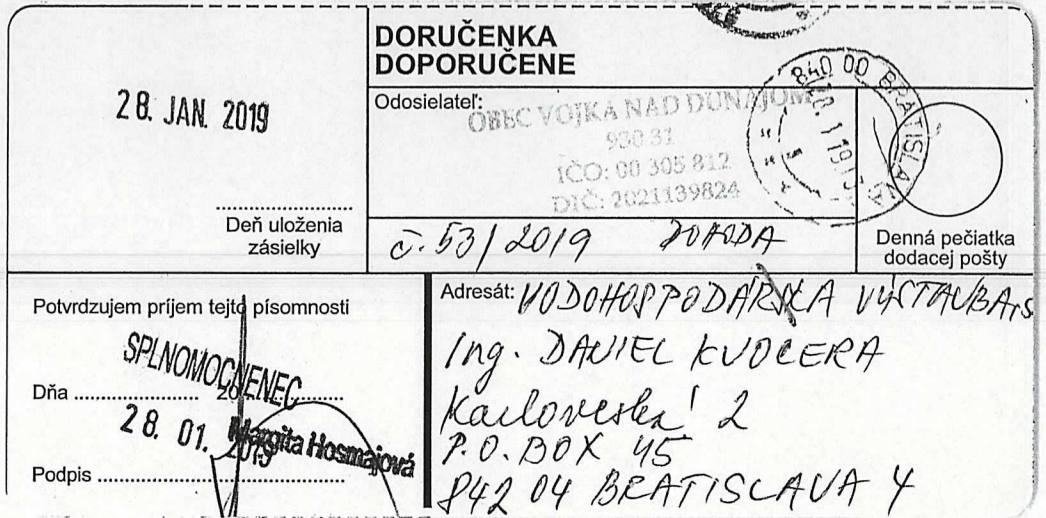 DORUČENKA
DOPORUČENE
28. JAN. 2019
Deň uloženia
zásielky
Odosielateľ:
OBEC VOJKA NAD DUNAJOM
930 31
IČO: 00 305 812
DIČ: 2021139824
č. 53/2019 DOHODA
840 00 BRATISLAVA
Denná pečiatka
dodacej pošty
Potvrdzujem príjem tejto písomnosti
SPLNOMOCNENEC
Dňa .................... 20....................
28. 01. 2019
Margita Hosmajová
Podpis ........................................
Adresát: VODOHOSPODÁRSKA VÝSTAVBA
Ing. DANIEL KVOCERA
Karloveská 2
P.O. BOX 45
842 04 BRATISLAVA 4